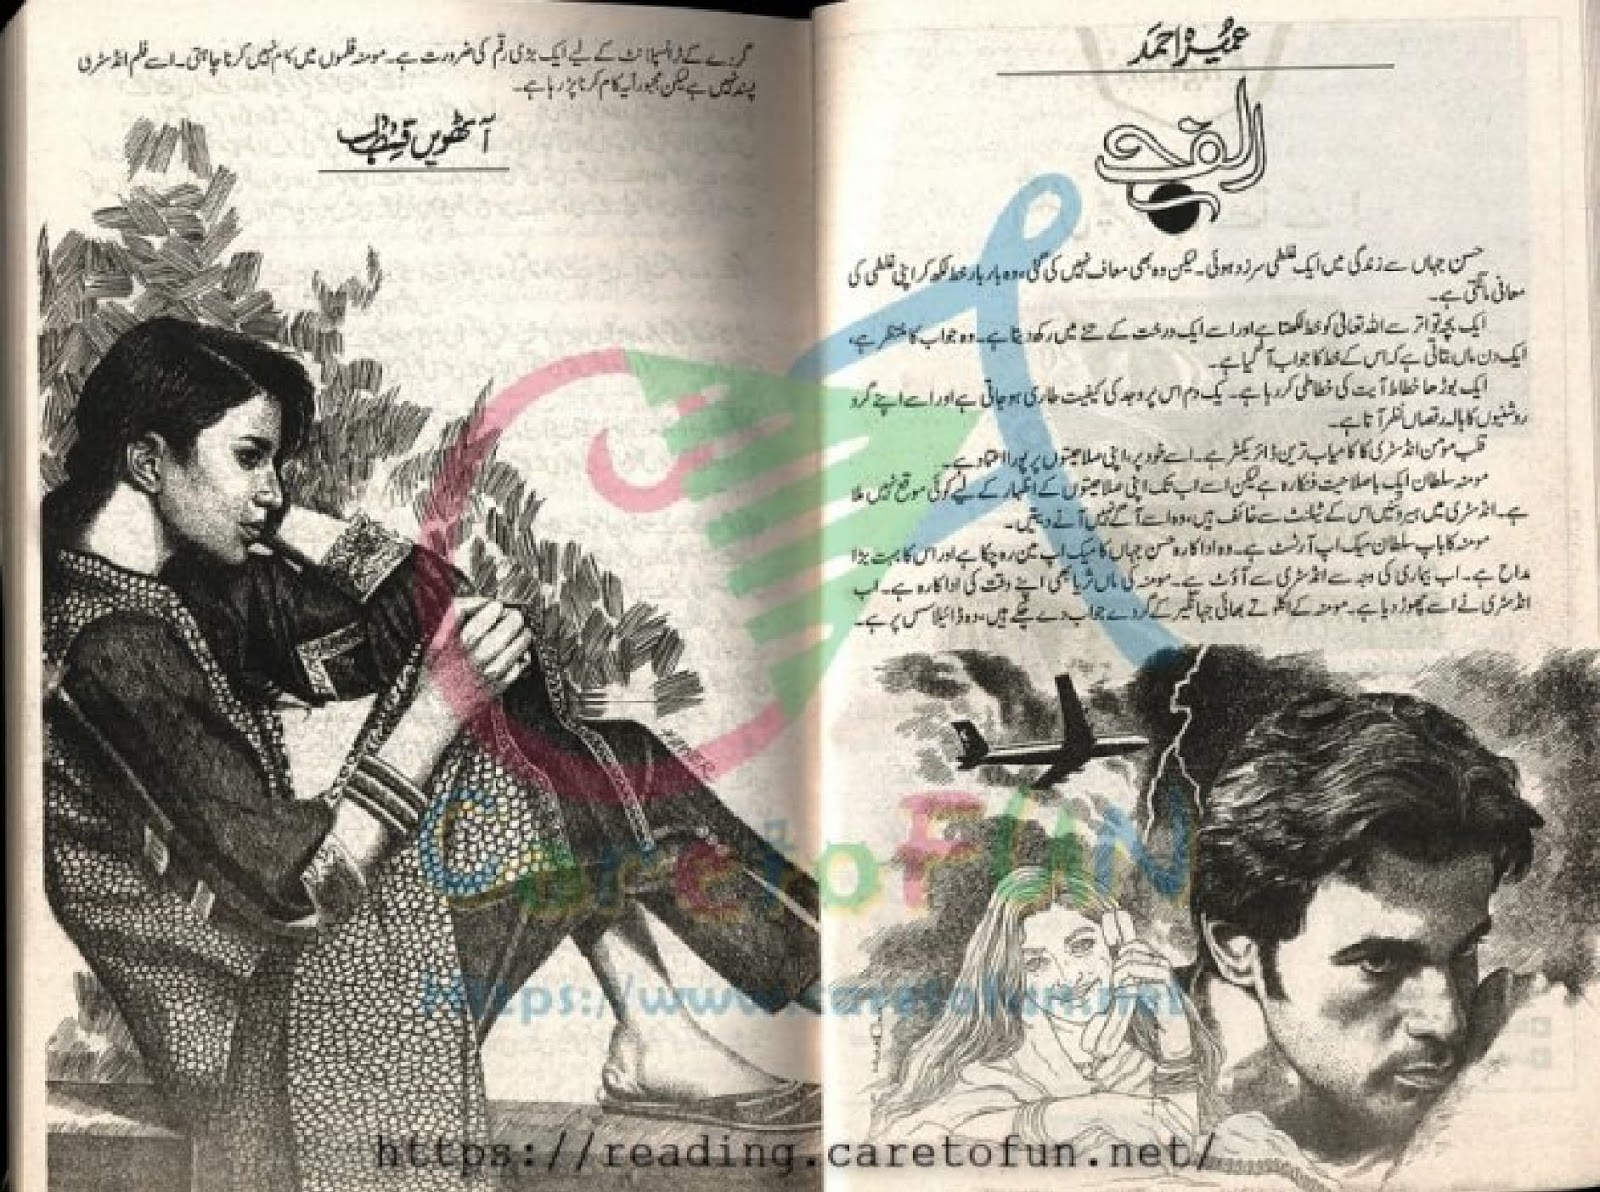 عمیرہ احمد
الف
حسن جہاں سے زندگی میں ایک غلطی سرزد ہوئی۔ لیکن وہ بھی معاف نہیں کی گئی، وہ بار بار خط لکھ کر اپنی غلطی کی
معافی مانگتی ہے۔
ایک بچہ تواتر سے اللہ تعالیٰ کو خط لکھتا ہے اور اسے ایک درخت کے تنے میں رکھ دیتا ہے۔ وہ جواب کا منتظر ہے،
ایک دن ماں بتاتی ہے کہ اس کے خط کا جواب آ گیا ہے۔
ایک بوڑھا خطاط آیت کی خطاطی کر رہا ہے۔ یک دم اس پر وجد کی کیفیت طاری ہو جاتی ہے اور اسے اپنے گرد
روشنیوں کا ہالہ رقصاں نظر آتا ہے۔
قلب مومن انڈسٹری کا کامیاب ترین ڈائریکٹر ہے۔ اسے خود پر، اپنی صلاحیتوں پر پورا اعتماد ہے۔
مومنہ سلطان ایک باصلاحیت فنکارہ ہے لیکن اسے اب تک اپنی صلاحیتوں کے اظہار کے لیے کوئی موقع نہیں ملا
ہے۔ انڈسٹری میں ہیروئنیں اس کے ٹیلنٹ سے خائف ہیں، وہ اسے آگے نہیں آنے دیتیں۔
مومنہ کا باپ سلطان میک اپ آرٹسٹ ہے۔ وہ اداکارہ حسن جہاں کا میک اپ مین رہ چکا ہے اور اس کا بہت بڑا
مداح ہے۔ اب بیماری کی وجہ سے انڈسٹری سے آؤٹ ہے۔ مومنہ کی ماں ثریا بھی اپنے وقت کی اداکارہ ہے۔ اب
انڈسٹری نے اسے چھوڑ دیا ہے۔ مومنہ کے اکلوتے بھائی جہانگیر کے گردے جواب دے چکے ہیں، وہ ڈائیلاسس پر ہے۔
گردے کے ٹرانسپلانٹ کے لیے ایک بڑی رقم کی ضرورت ہے۔ مومنہ فلموں میں کام نہیں کرنا چاہتی۔ اسے فلم انڈسٹری
پسند نہیں ہے لیکن مجبوراً یہ کام کرنا پڑ رہا ہے۔
آٹھویں قسط
CaretoFUN
https://www.caretofun.net
https://reading.caretofun.net/